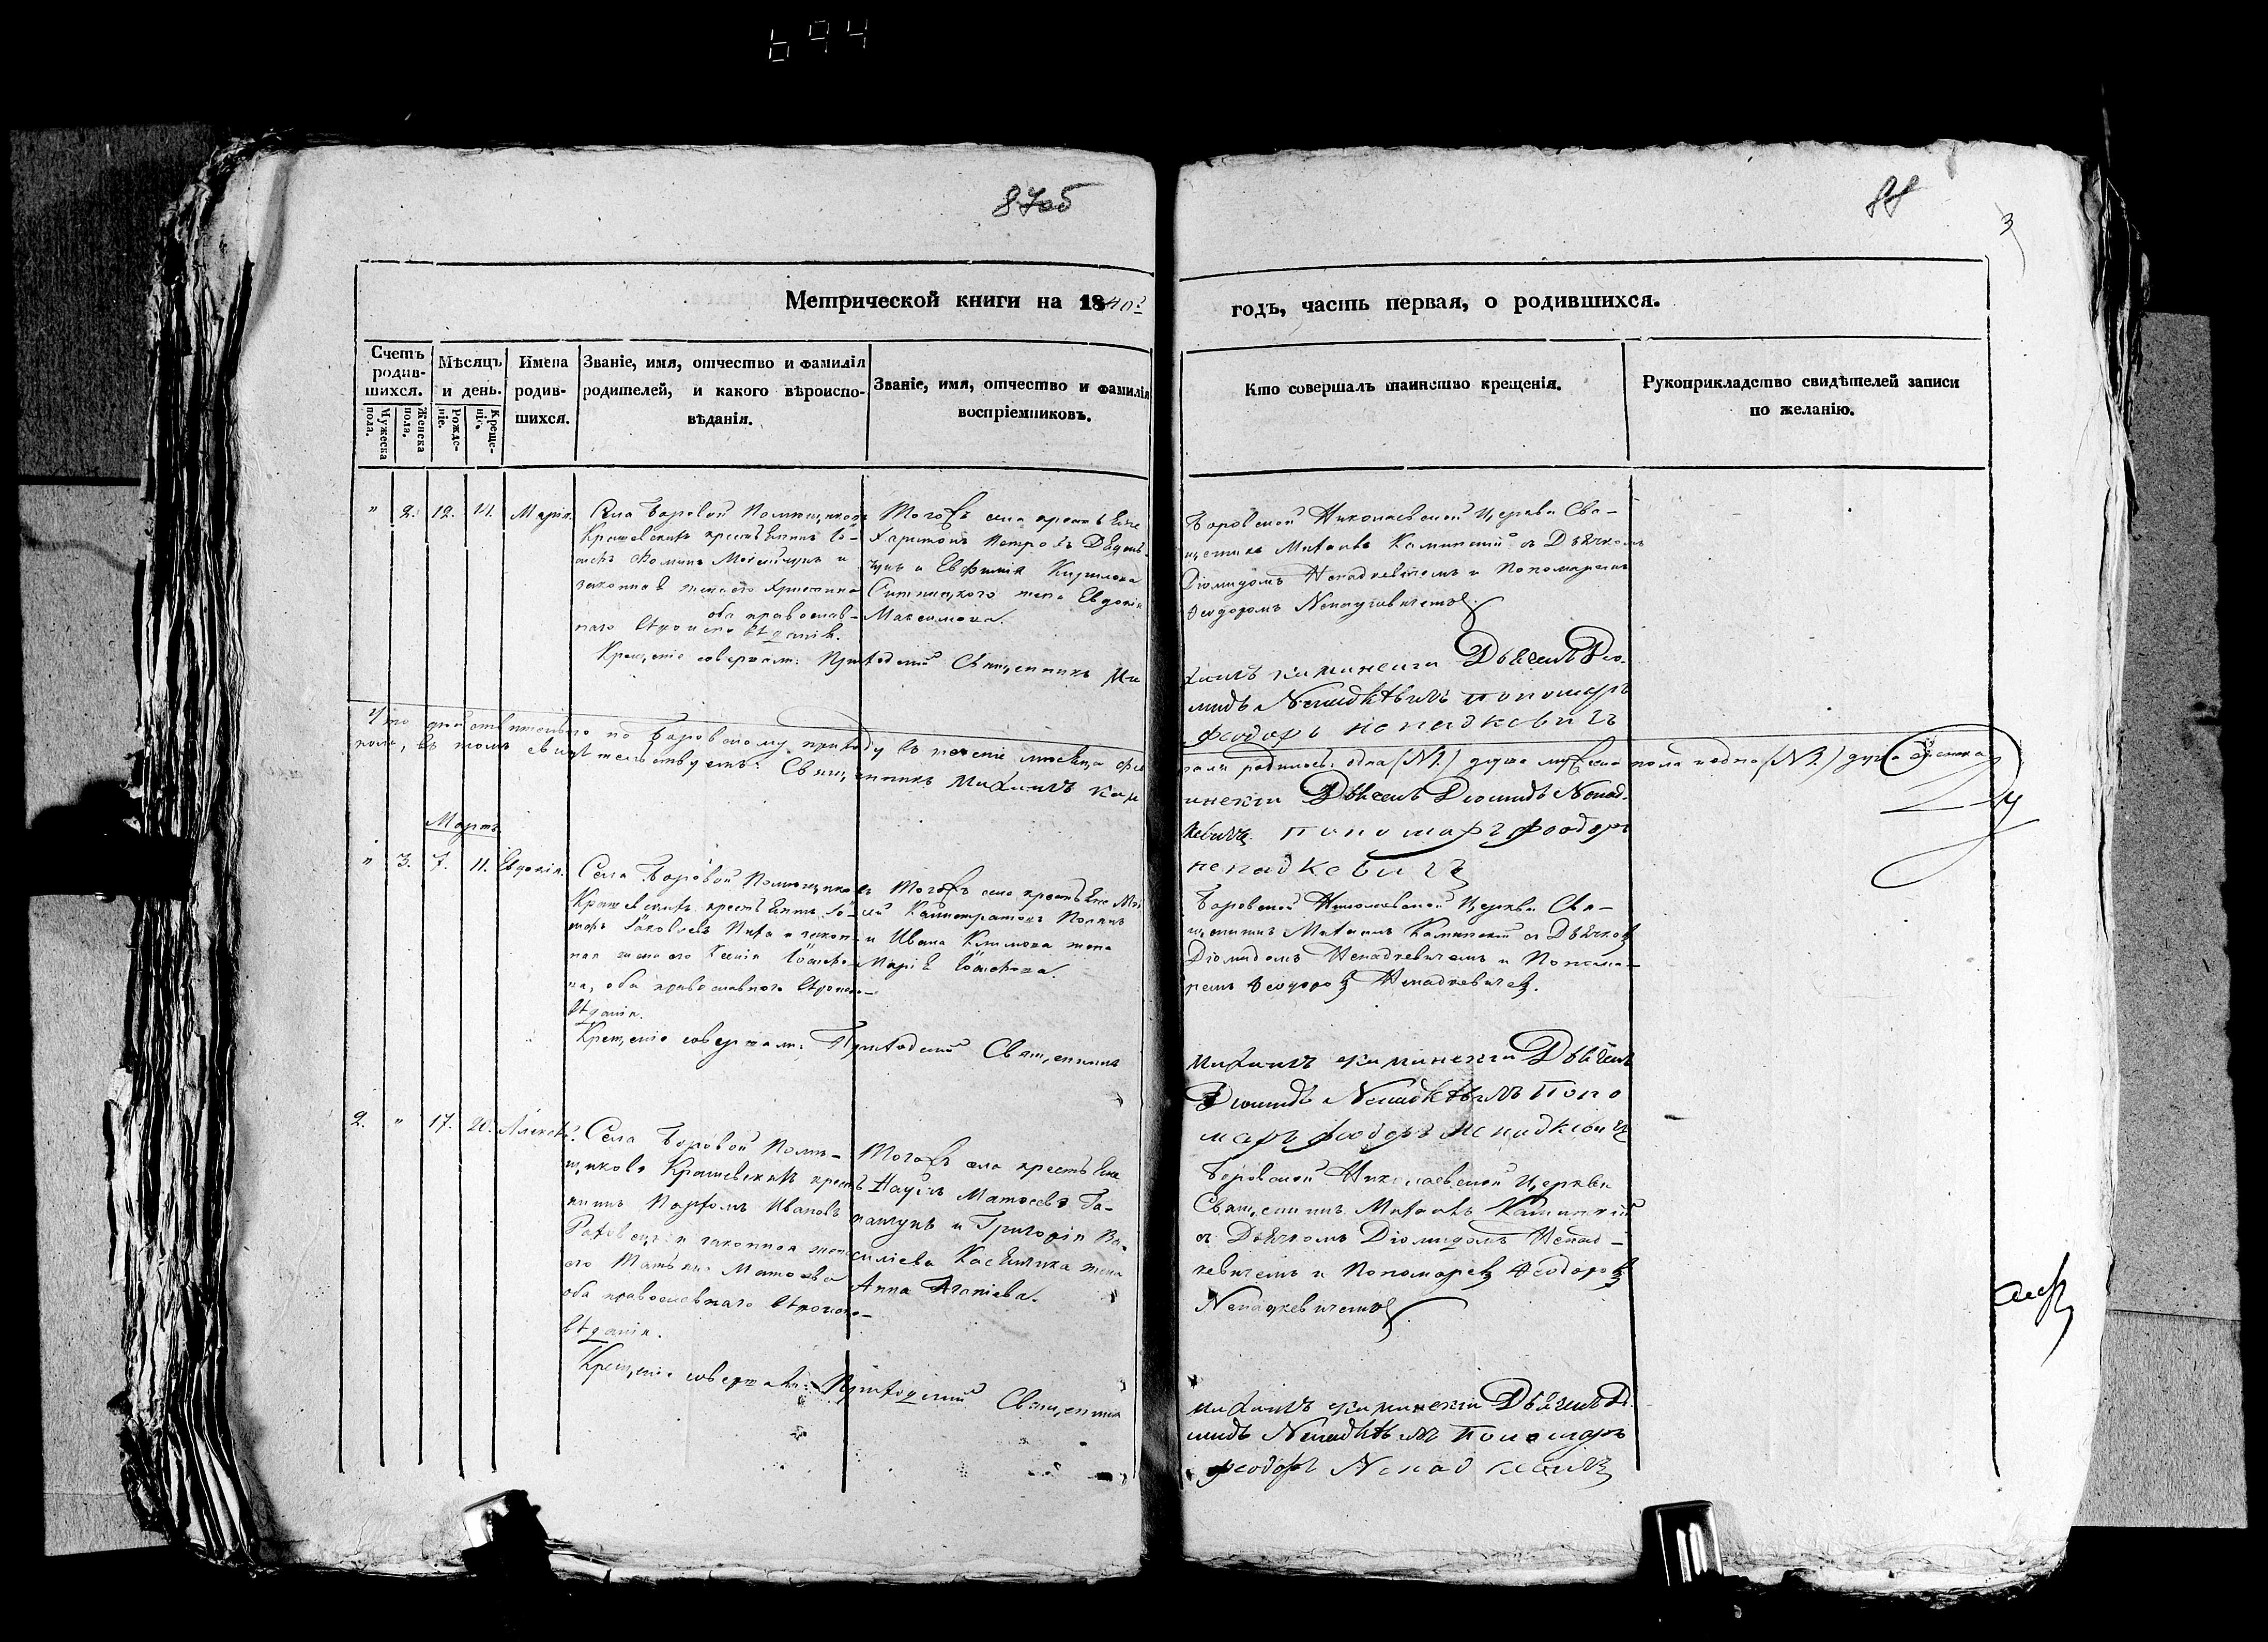 694
87об
88
3
Метрической книги на 1840й
годъ, часть первая, о родившихся.
Счетъ родив-
шихся.
Мужеска пола.
Женска пола.
Мѣсяцъ
и день.
Рожде-
ніе.
Креще-
ніе.
Имена
родив-
шихся.
Званіе, имя, отчество и фамилія
родителей, и какого вѣроиспо-
вѣданія.
Званіе, имя, отчество и фамилія
воспріемниковъ.
Кто совершалъ таинство крещенія.
Рукоприкладство свидѣтелей записи
по желанію.
" 2. 12. 14. Марія.
Села Боровой Помѣщиковъ
Крашевскихъ крестьянинъ
Ѳоминъ и
законная жена его Христина
оба православ-
наго вѣроисповѣданія.
Тогожъ села крестьяне
Харитонъ Петровъ
и Евфимія Кирилова
жена Евдокія
Максимова.
Боровской Николаевской Церкви Свя-
щенникъ Михаилъ Каминскій съ Дьячкомъ
Діомидомъ Ненадкевичемъ и Пономаремъ
Феодоромъ Ненадкевичемъ
Крещеніе совершали: Приходскій Священникъ Ми
хаилъ каминскій Дьячекъ Діо-
мидъ Ненадкевичъ пономарь
феодоръ ненадкевичъ
Что дѣйствительно по Боровскому приходу въ теченіе мѣсяца фев
раля родилось: одна (№1.) душа мужеска пола и одна (№1.) душа женска
пола, въ томъ свидѣтельствуемъ: Священникъ Михаилъ кам
инскій Дьячекъ Діомидъ Ненад-
кевичъ пономарь феодоръ
ненадкевичъ
Мартъ.
" 3. 7. 11. Евдокія.
Села Боровой Помѣщиковъ
Крашевскихъ крестьянинъ
Яковлевъ и закон-
ная жена его Ксенія
на, оба православнаго вѣроиспо-
вѣданія.
Тогожъ села крестьяне
Калистратовъ
и Ивана Климова жена
Марія
Боровской Николаевской Церкви Свя-
щенникъ Михаилъ Каминскій съ Дьячкомъ
Діомидомъ Ненадкевичемъ и Понома-
ремъ Феодоромъ Ненадкевичемъ.
Крещеніе совершали: Приходскій Священникъ
михаилъ каминскій Дьячекъ
Діомидъ Ненадкевичъ Поно
марь феодоръ Ненадкевичъ
2. " 17. 20. Алексѣй.
Села Боровой Помѣ-
щиковъ Крашевскихъ кресть
янинъ Ивановъ
и законная жена
его Татьяна
оба православнаго вѣроиспо-
вѣданія.
Тогожъ села крестьяне
Наумъ Матѳеевъ
и Григорія Ва-
силіева жена
Анна
Боровской Николаевской Церкви
Священникъ Михаилъ Каминскій
съ Дьячкомъ Діомидомъ Ненад-
кевичемъ и Пономаремъ Феодоромъ
Ненадкевичемъ
Крещеніе совершали: Приходскій Священникъ
михаилъ каминскій Дьячекъ Діо
мидъ Ненадкевичъ Пономарь
феодоръ Ненадкевичъ